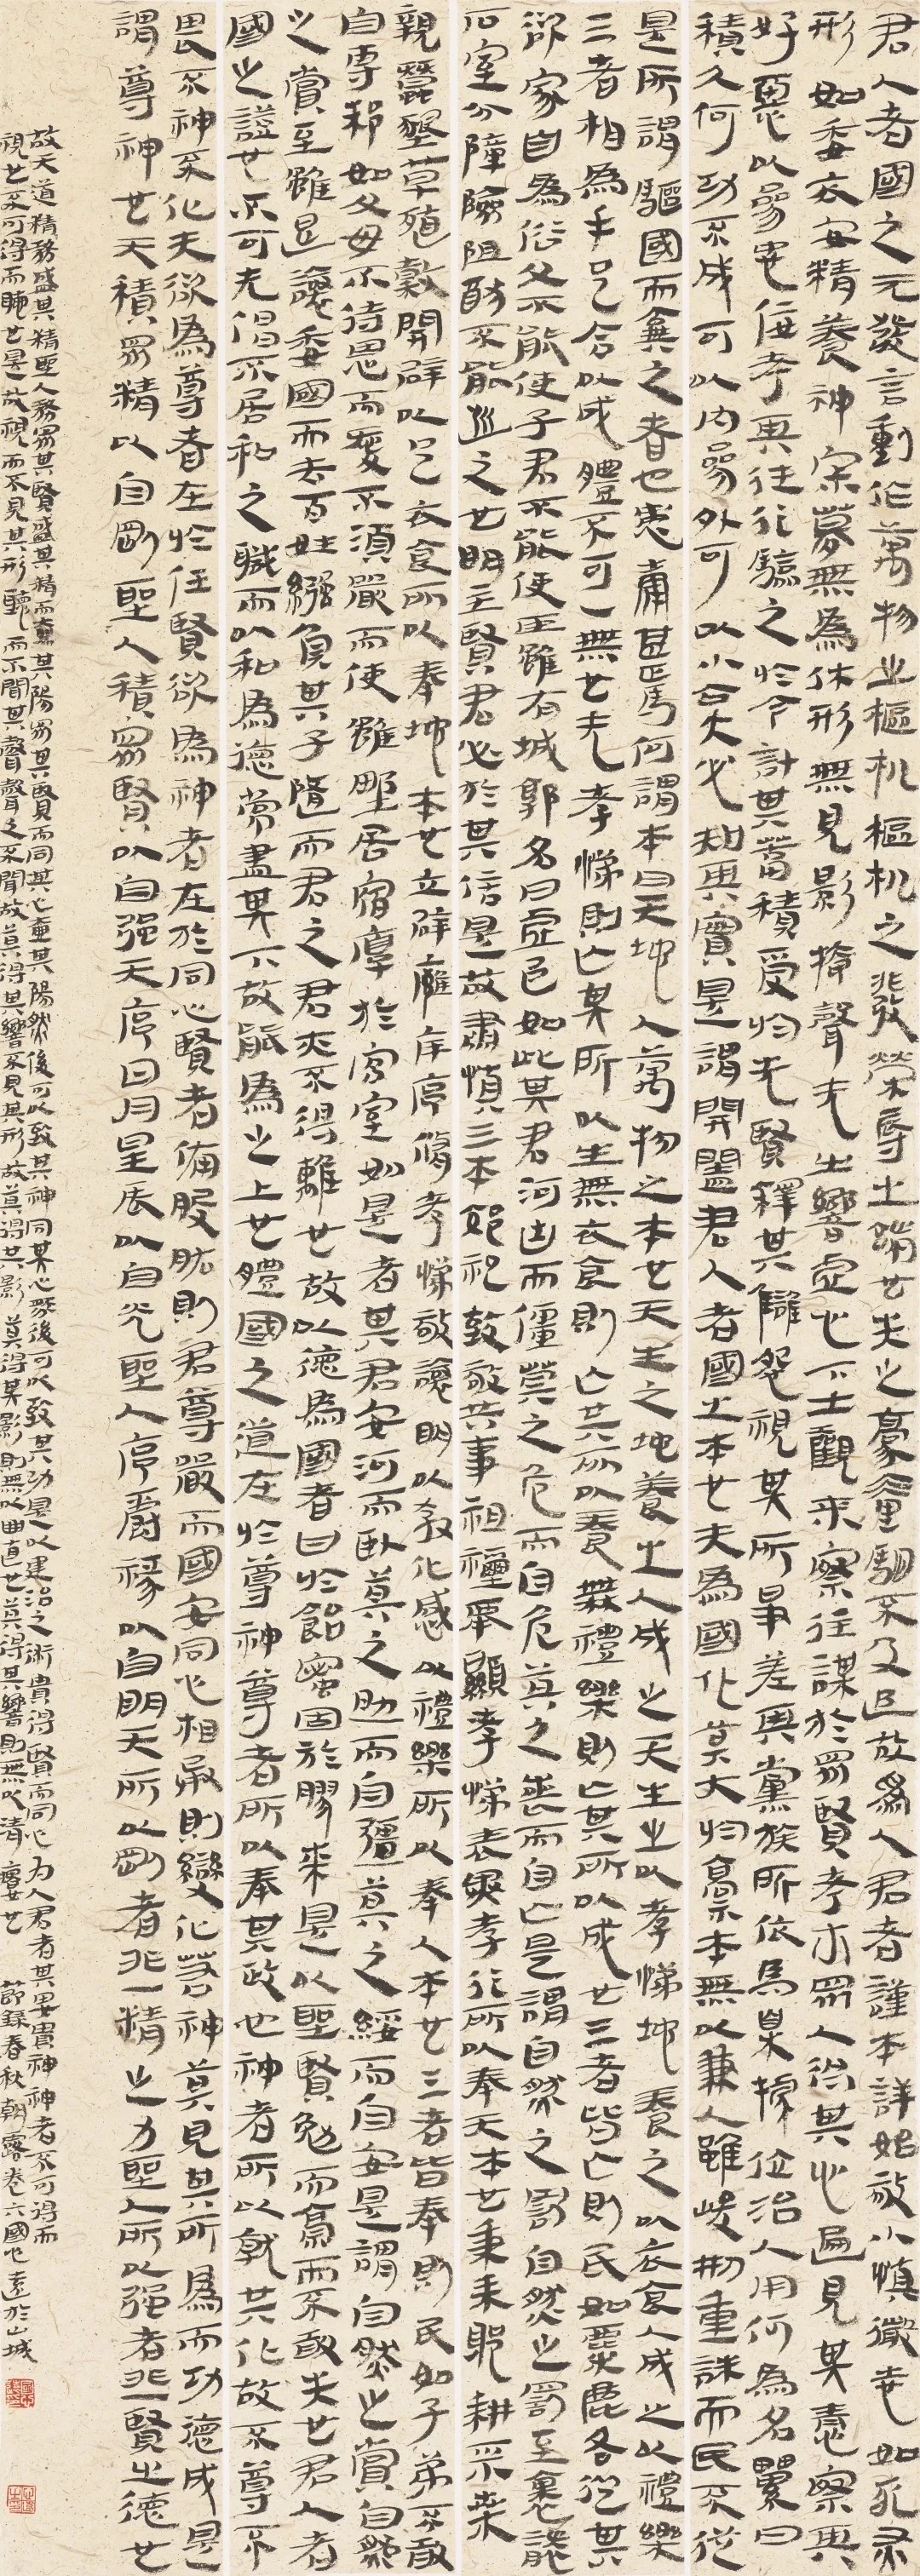 君人者國之元發言動作萬物之樞機樞機之發榮辱之端也失之豪釐駟不及追故為人君者謹本詳始敬小慎微志如死灰
形如委衣安精養神寂寞無為休形無見影揜聲无出響虛心下士觀來察往謀於眾賢考求眾人得其心遍見其情察其
好惡以參忠佞考其往行驗之於今計其蓄積受於先賢釋其讎怨視其所爭差其黨族所依為臬據位治人用何為名累日
積久何功不成可以內參外可以小占大必知其實是謂開闔君人者國之本也夫為國化莫大於崇本無以兼人雖峻刑重誅而民不從
是所謂驅國而棄之者也患庸甚焉何謂本曰天地人萬物之本也天生之地養之人成之天生之以孝悌地養之以衣食人成之以禮樂
三者相為手足合以成體不可一無也无孝悌則亡其所以生無衣食則亡其所以養無禮樂則亡其所以成也三者皆亡則民如麋鹿各從其
欲家自為俗父不能使子君不能使臣雖有城郭名曰虛邑如此其君河凷而僵莫之危而自危莫之喪而自亡是謂自然之罰自然之罰至裹襲
石室分障險阻猶不能逃之也明主賢君必於其信是故肅慎三本郊祀致敬共事祖禰舉顯孝悌表異孝行所以奉天本也秉耒躬耕采桑
親蠶墾草殖穀開辟以足衣食所以奉地本也立辟廱庠序脩孝悌敬讓明以教化感以禮樂所以奉人本也三者皆奉則民如子弟不敢
自專邦如父母不待恩而愛不須嚴而使雖野居宿厚於宮室如是者其君安河而臥莫之助而自彊莫之綏而自安是謂自然之賞自然
之賞至雖退讓委國而去百姓繈負其子隨而君之君亦不得離也故以德為國者甘於飴蜜固於膠漆是以聖賢勉而崇而不敢失也君人者
國之證也不可先倡不居和之職而以和為德常盡其下故能為之上也體國之道在於尊神尊者所以奉其政也神者所以就其化故不尊不
畏不神不化夫欲為尊者在於任賢欲為神者在於同心賢者備股肱則君尊嚴而國安同心相承則變化若神莫見其所為而功德成是
謂尊神也天積眾精以自剛聖人積眾賢以自強天序日月星辰以自光聖人序爵祿以自明天所以剛者非一精之力聖人所以強者非一賢之德也
故天道務盛其精聖人務眾其賢盛其精而壹其陽眾其賢而同其心壹其陽然後可以致其神同其心然後可以致其功是以建治之術貴得賢而同心为人君者其要貴神神者不可得而
視也不可得而聽也是故視而不見其形聽而不聞其聲聲之不聞故莫得其響不見其形故莫得其影莫得其影則無以曲直也莫得其響則無以清濁也 節錄春秋朝露卷六國也書於山城